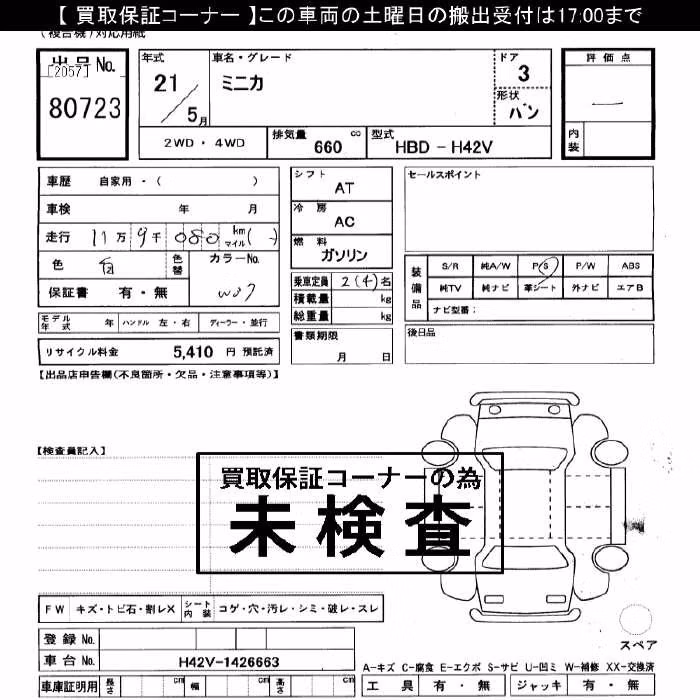 【 買取保証コーナー 】この車両の土曜日の搬出受付は17:00まで
(複合機)対応用紙
出品No.
[2057]
80723
年式
21
5月
車名・グレード
ミニカ
ドア
3
形状
バン
評価点
内装
2WD・4WD
排気量
660
cc
型式
HBD - H42V
車歴 自家用・( )
車検 年 月
走行 11万 9千 080 km マイル ( )
色 白
色替
カラーNo.
W07
保証書 有・無
シフト
AT
冷房
AC
燃料
ガソリン
乗車定員 2(4)名
積載量 kg
総重量 kg
セールスポイント
装備品
S/R 純A/W P/S P/W ABS
純TV 純ナビ 革シート 外ナビ エアB
ナビ型番:
モデル年式 年 ハンドル 左・右 ディーラー・並行
リサイクル料金 5,410 円 預託済
書類期限
月 日
後日品
【出品店申告欄(不良箇所・欠品・注意事項等)】
【検査員記入】
買取保証コーナーの為
未検査
FW キズ・トビ石・割レX シート内装 コゲ・穴・汚レ・シミ・破レ・スレ
スペア
登録 No.
車台 No. H42V-1426663
A-キズ C-腐食 E-エクボ S-サビ U-凹ミ W-補修 XX-交換済
車庫証明用 長さ cm 幅 cm 高さ cm
工具 有・無 ジャッキ 有・無